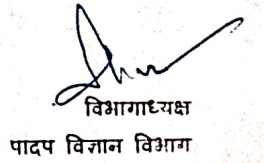 विभागाध्यक्ष
पादप विज्ञान विभाग